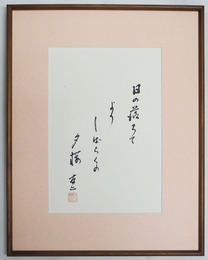 日の落ちて
より
しばらくの
夕桜